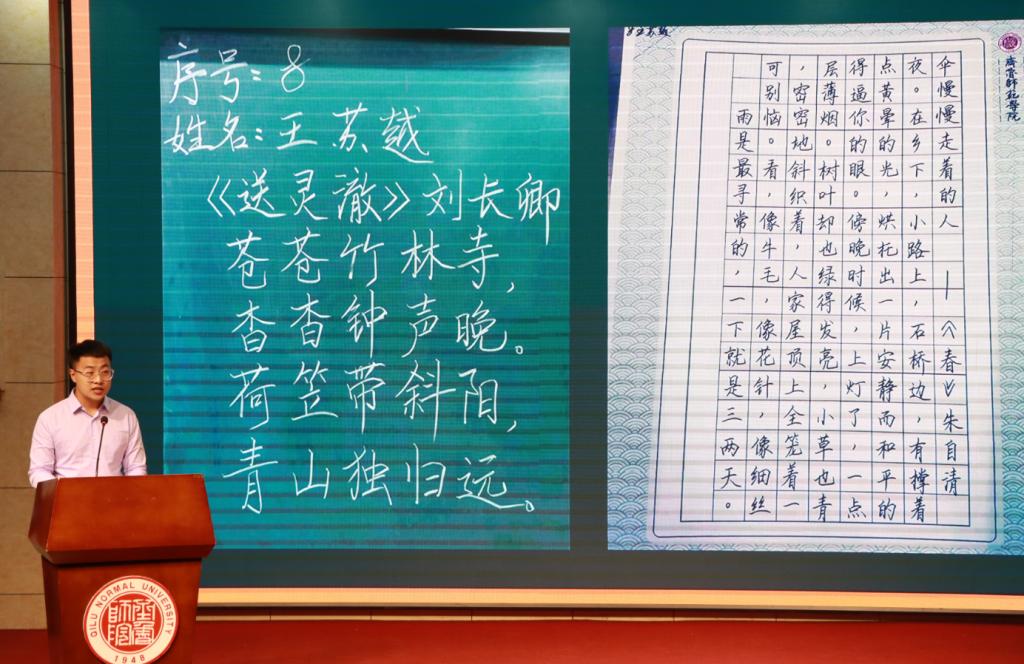 序号：8
姓名：王苏越
《送灵澈》刘长卿
苍苍竹林寺，
杳杳钟声晚。
荷笠带斜阳，
青山独归远。
8王苏越
雨是最寻常的，一下就是三两天。
可别恼。看，像牛毛，像花针，像细丝
，密密地斜织着，人家屋顶上全笼着一
层薄烟。树叶却也绿得发亮，小草也青
得逼你的眼。傍晚时候，上灯了，一点
点黄晕的光，烘托出一片安静而和平的
夜。在乡下，小路上，石桥边，有撑着
伞慢慢走着的人 —〈春〉朱自清
齊魯師範學院
QILU NORMAL UNIVERSITY
1948